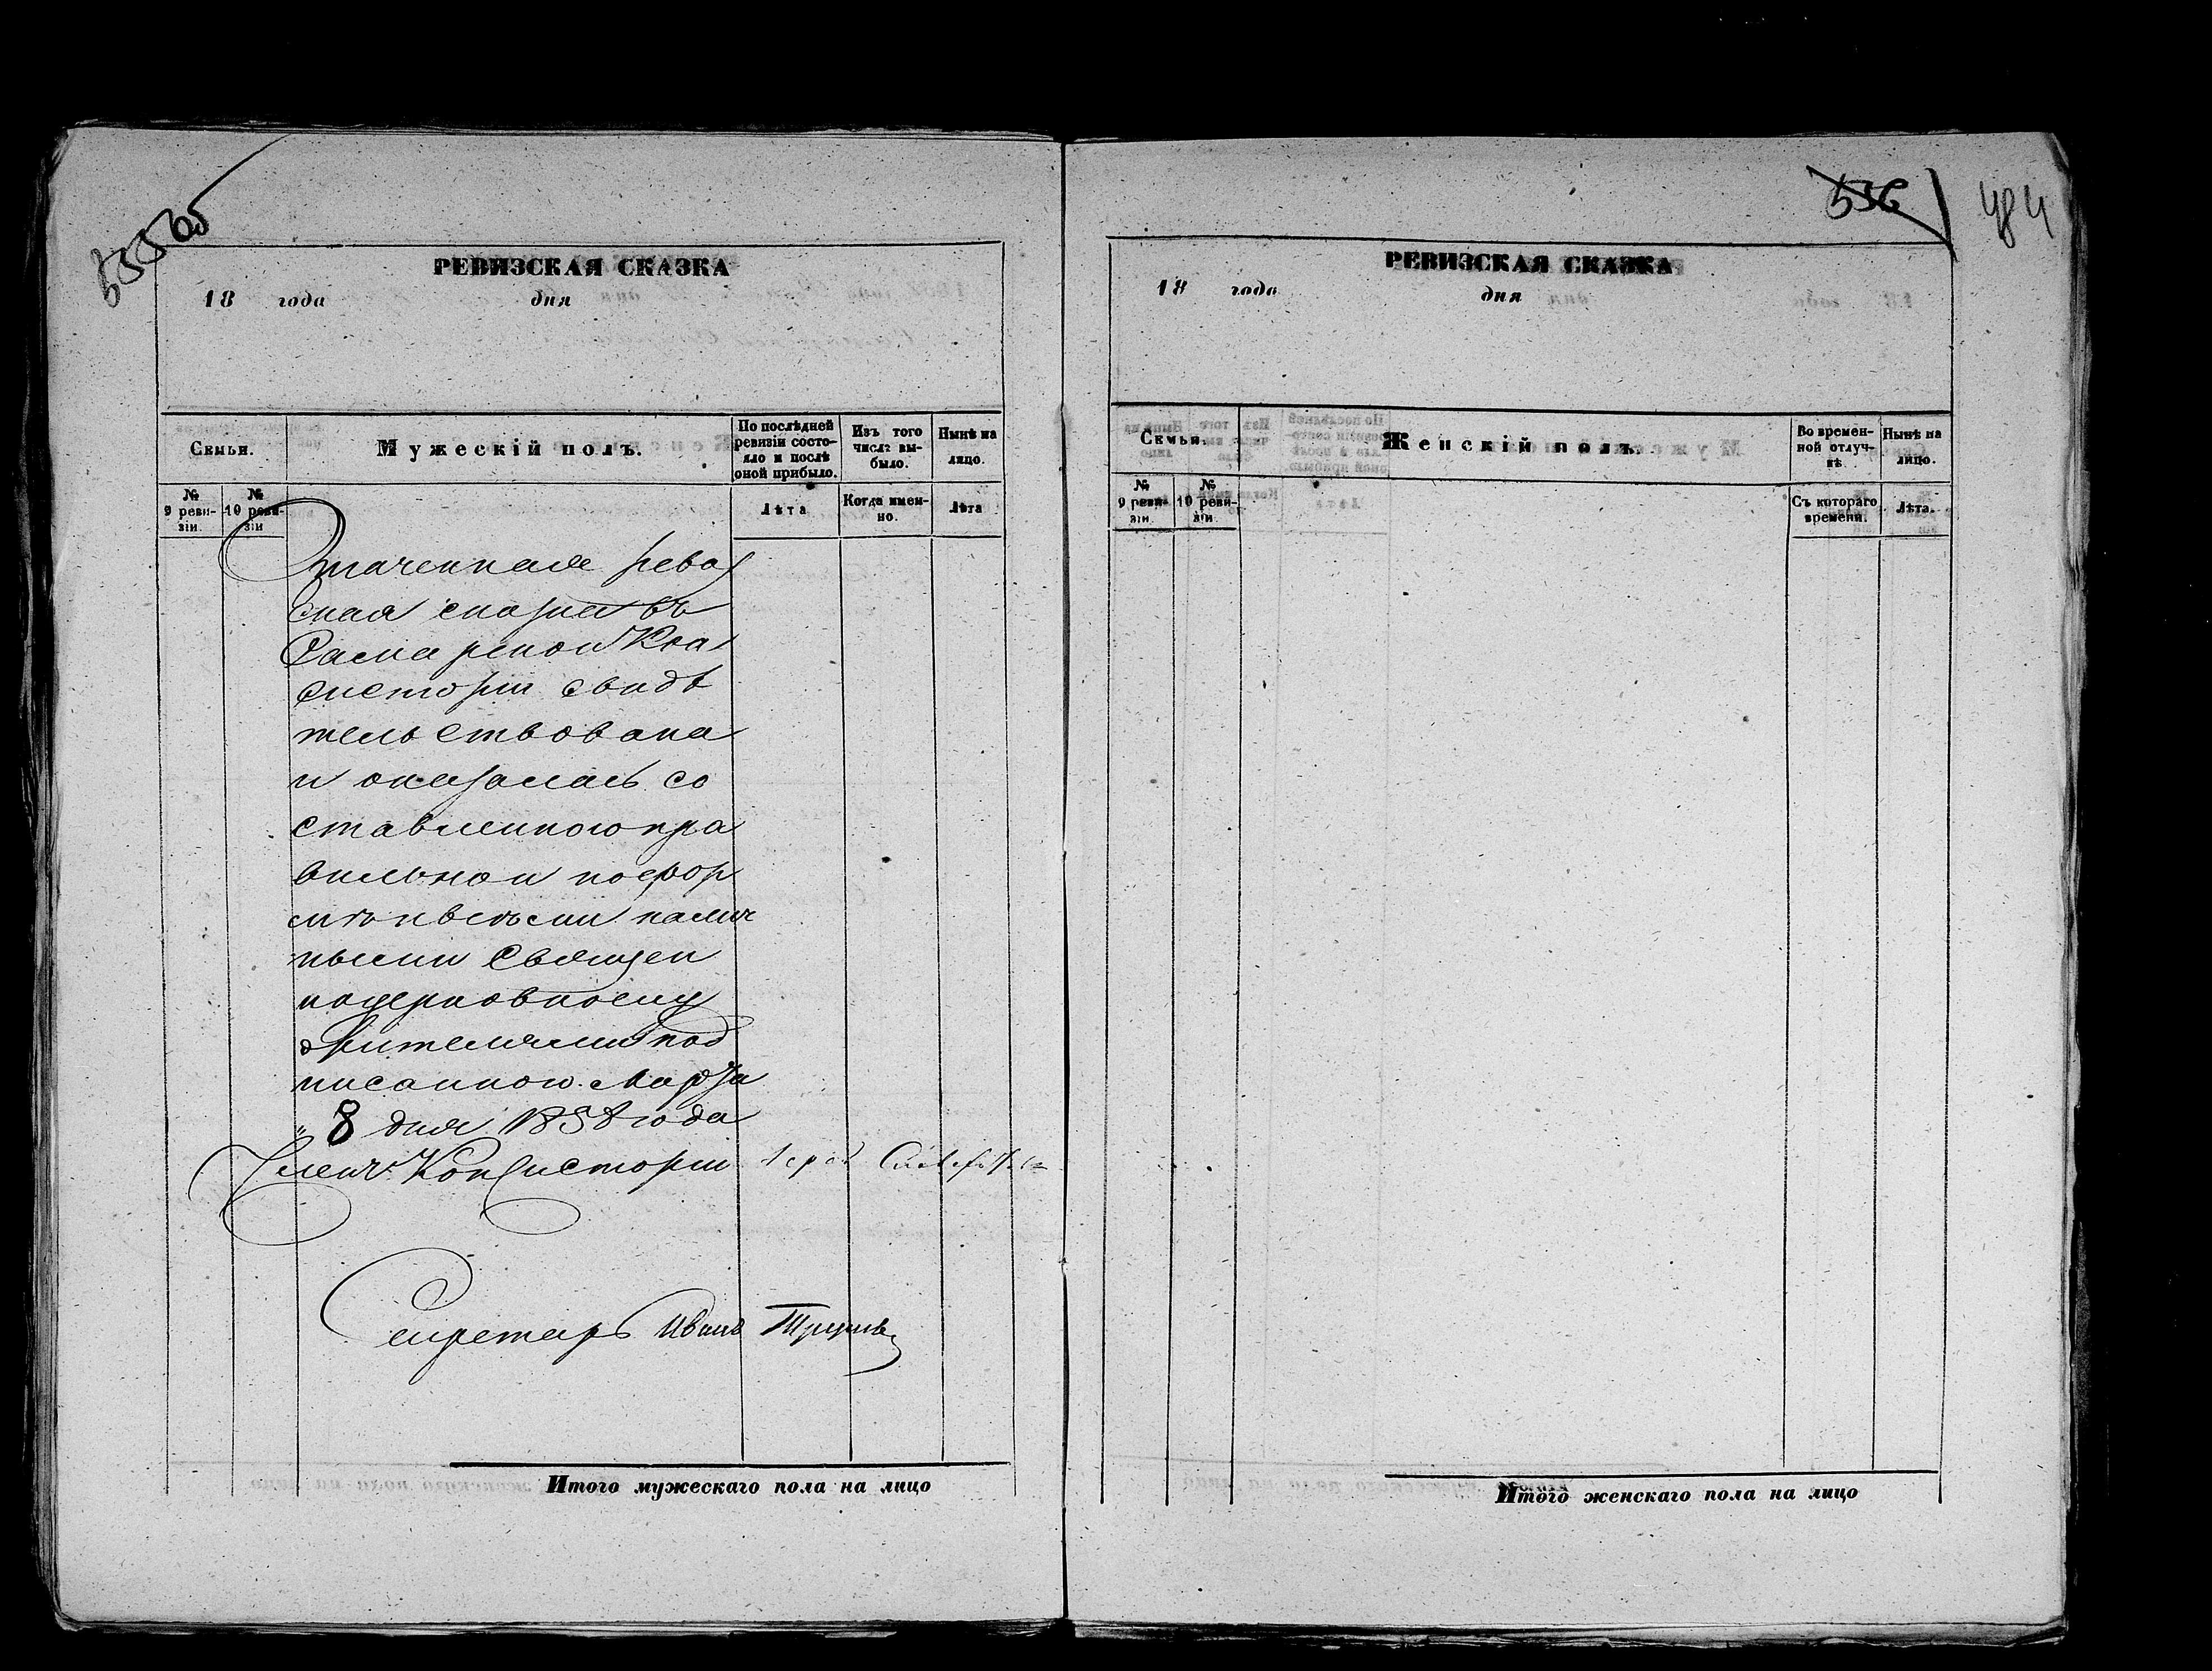 535 об
РЕВИЗСКАЯ СКАЗКА
18 года дня
Семьи.
Мужескій полъ.
По послѣдней ревизіи состояло и послѣ оной прибыло.
Изъ того числа выбыло.
Нынѣ на лицо.
№ 9 ревизіи.
№ 10 ревизіи
Лѣта
Когда именно.
Лѣта
Означенная реви
ская сказка въ
Самарской Кон
систоріи свидѣ
тельствована
и оказалась со
ставленною пра
вильно и по фор
мѣ и всѣми налич
ными Священ
ноцерковнослу
жителями под
писанною. Марта
" 8 дня 1858 года
Членъ Консисторіи Іерей
Секретарь Иванъ
Итого мужескаго пола на лицо
536
484
РЕВИЗСКАЯ СКАЗКА
18 года дня
Семьи.
Женскій полъ.
Во временной отлучкѣ
Нынѣ на лицо.
№ 9 ревизіи.
№ 10 ревизіи.
Съ котораго времени.
Лѣта.
Итого женскаго пола на лицо